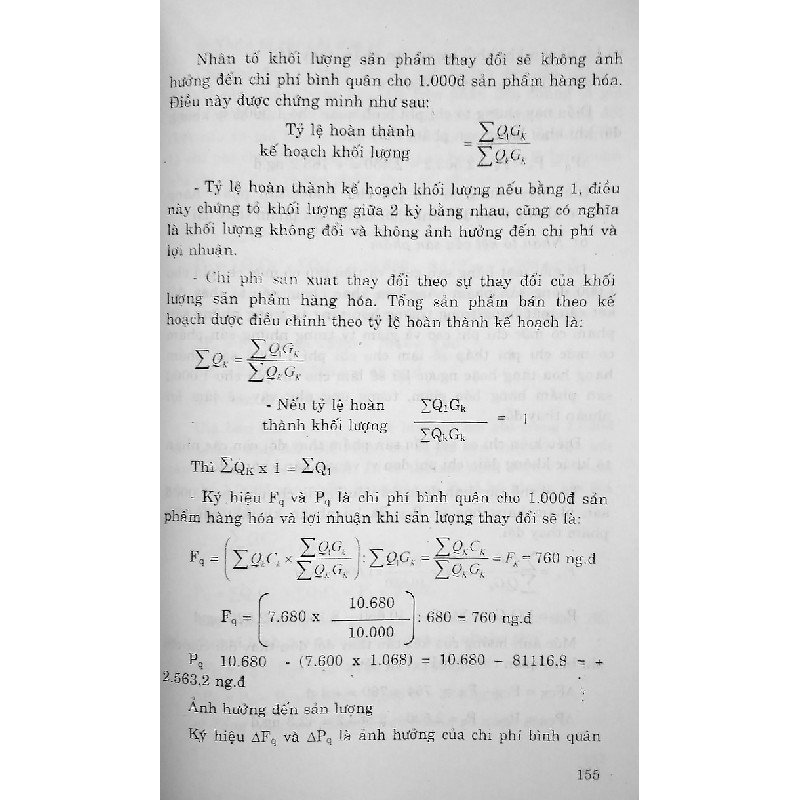 Nhân tố khối lượng sản phẩm thay đổi sẽ không ảnh
hưởng đến chi phí bình quân cho 1.000đ sản phẩm hàng hóa.
Điều này được chứng minh như sau:
Tỷ lệ hoàn thành
kế hoạch khối lượng = ∑Q₁Gₖ / ∑QₖGₖ
- Tỷ lệ hoàn thành kế hoạch khối lượng nếu bằng 1, điều
này chứng tỏ khối lượng giữa 2 kỳ bằng nhau, cũng có nghĩa
là khối lượng không đổi và không ảnh hưởng đến chi phí và
lợi nhuận.
- Chi phí sản xuất thay đổi theo sự thay đổi của khối
lượng sản phẩm hàng hóa. Tổng sản phẩm bán theo kế
hoạch được điều chỉnh theo tỷ lệ hoàn thành kế hoạch là:
∑Qₖ = ∑Q₁Gₖ / ∑QₖGₖ
- Nếu tỷ lệ hoàn
thành khối lượng ∑Q₁Gₖ / ∑QₖGₖ = 1
Thì ∑Qₖ x 1 = ∑Q₁
- Ký hiệu F_q và P_q là chi phí bình quân cho 1.000đ sản
phẩm hàng hóa và lợi nhuận khi sản lượng thay đổi sẽ là:
F_q = (∑QₖCₖ × ∑Q₁Gₖ / ∑QₖGₖ) : ∑Q₁Gₖ = ∑QₖCₖ / ∑QₖGₖ = Fₖ = 760 ng.đ
F_q = (7.680 x 10.680 / 10.000) : 680 = 760 ng.đ
P_q 10.680 - (7.600 x 1.068) = 10.680 – 81116,8 = +
2.563,2 ng.đ
Ảnh hưởng đến sản lượng
Ký hiệu ΔF_q và ΔP_q là ảnh hưởng của chi phí bình quân
155